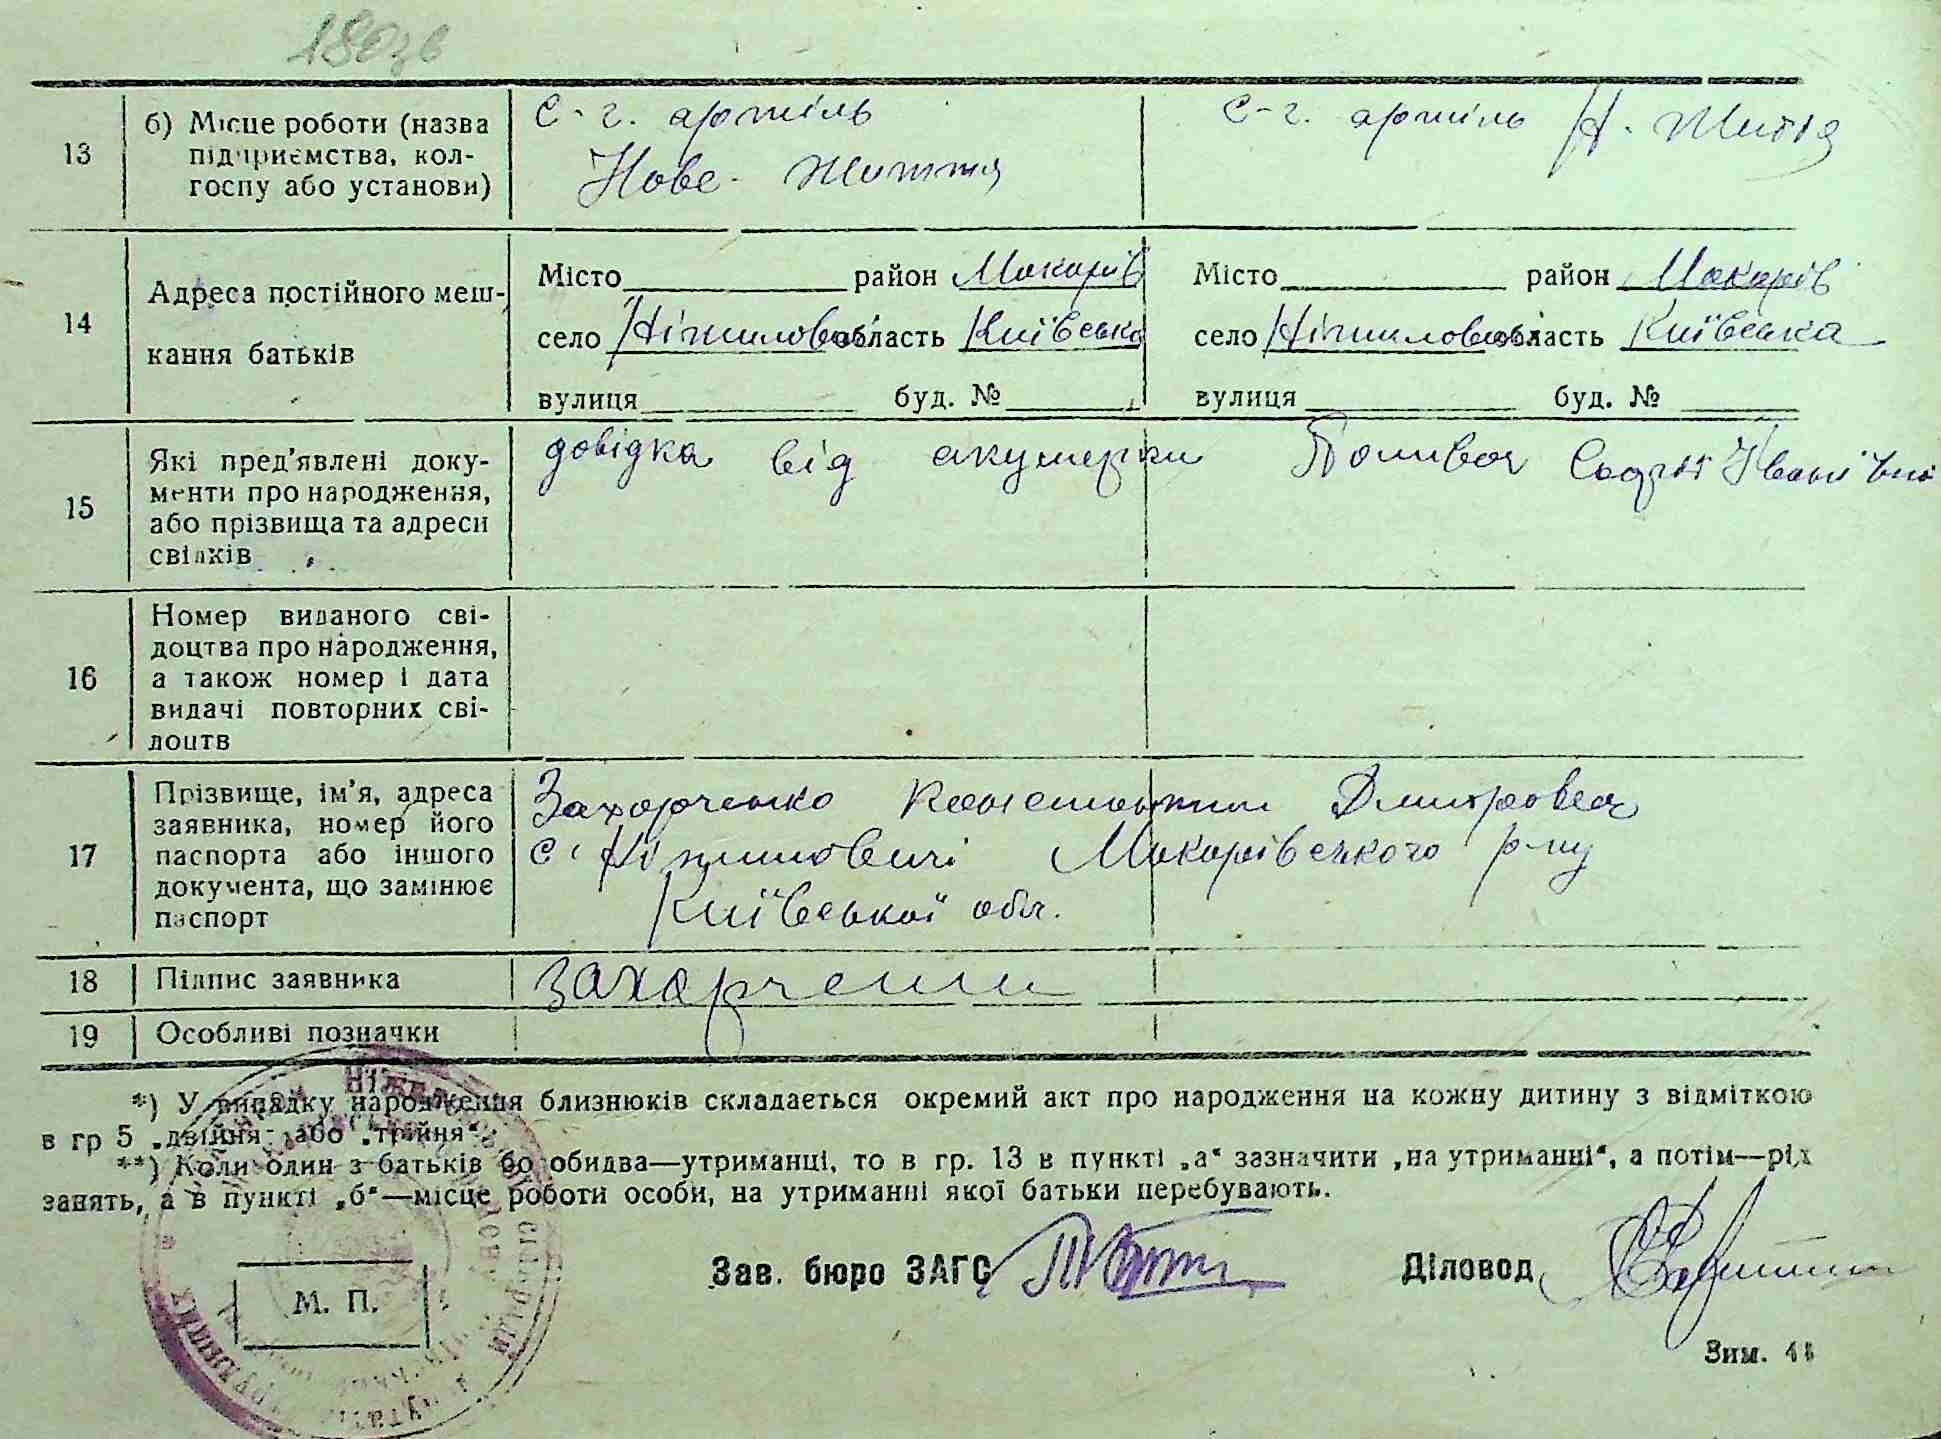 180зв
13
б) Місце роботи (назва
підприємства, кол-
госпу або установи)
с-г. артіль
Нове-Життя
с-г. артіль Н. Життя
14
Адреса постійного меш-
кання батьків
Місто район Макарів
село Ніжиловичі область Київська
вулиця буд. №
Місто район Макарів
село Ніжиловичі область Київська
вулиця буд. №
15
Які пред'явлені доку-
менти про народження,
або прізвища та адреси
свідків
довідка від акушерки Іванівни
16
Номер виданого сві-
доцтва про народження,
а також номер і дата
видачі повторних сві-
доцтв
17
Прізвище, ім'я, адреса
заявника, номер його
паспорта або іншого
документа, що замінює
паспорт
Захарченко Констянтин Дмитрович
с. Ніжиловичі Макарівського р-ну
Київської обл.
18
Підпис заявника
Захарченко
19
Особливі позначки
*) У випадку народження близнюків складається окремий акт про народження на кожну дитину з відміткою
в гр 5 „двійня" або „трійня".
**) Коли один з батьків бо обидва—утриманці, то в гр. 13 в пункті „а" зазначити „на утриманні", а потім—рід
занять, а в пункті „б"—місце роботи особи, на утриманні якої батьки перебувають.
М. П.
Зав. бюро ЗАГС
Діловод
Зим.